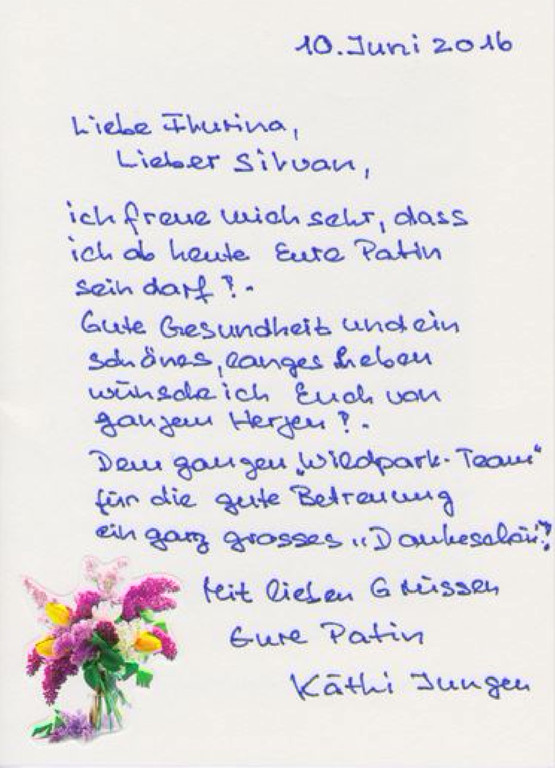 10. Juni 2016
Liebe Thurina,
Lieber Silvan,
ich freue mich sehr, dass
ich ab heute Eure Patin
sein darf!.
Gute Gesundheit und ein
schönes, langes Leben
wünsche ich Euch von
ganzem Herzen!.
Dem ganzen „Wildpark-Team"
für die gute Betreuung
ein ganz grosses „Dankeschön!"
Mit lieben Grüssen
Eure Patin
Käthi Jungen